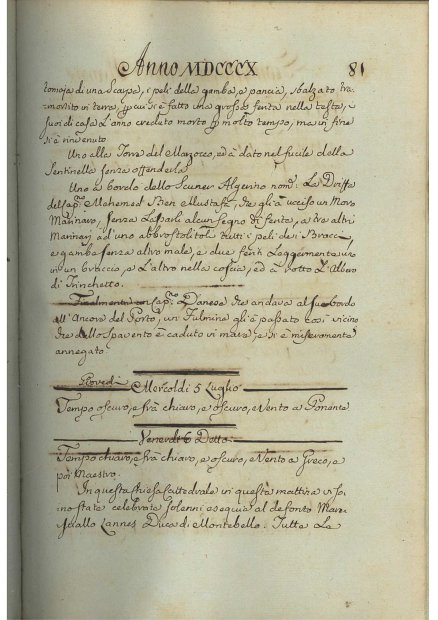 Anno MDCCCX 81
tomoja di una Scarpa, i peli della gamba, a pancia, sbalzato tra-
mortito in terra, p cui si è fatto una grossa ferita nella testa, i
suoi di casa l'anno creduto morto p molto tempo, ma in fine
si è rinvenuto.
Uno alla Torre del Marzocco, ed à dato nel fucile della
Sentinella senza offenderla.
Uno a bordo dello Scuner Algerino nom.: La Driffa
del Cap. Mehemed Bien Mustafà, che gli à ucciso un Moro
Marinaro, senza Lasciarli alcun segno di ferita, a tre altri
Marinarj ad uno abbrostolitoli tutti i peli dei Bracci,
e gambe senza altro male, e due feriti Leggermente, uno
in un braccio, e L'altro nella coscia, ed à rotto L'Albero
di Trinchetto.
Finalmente un Cap. Danese che andava al suo bordo
all'Ancora del Porto, un Fulmine gli è passato così vicino
che dello spavento è caduto in mare, e si è miseramente
annegato.
Giovedì
Mercoldì 5 Luglio
Tempo oscuro, e frà chiaro, e oscuro, e Vento a Ponente
Venerdì 6 Detto:
Tempo chiaro, e frà chiaro, e oscuro, e Vento a Greco, e
poi Maestro.
In questa Chiesa Cattedrale in questa mattina vi so-
no state celebrate Solenni esequie al defonto Mare-
sciallo Lannes Duca di Montebello. Tutte Le